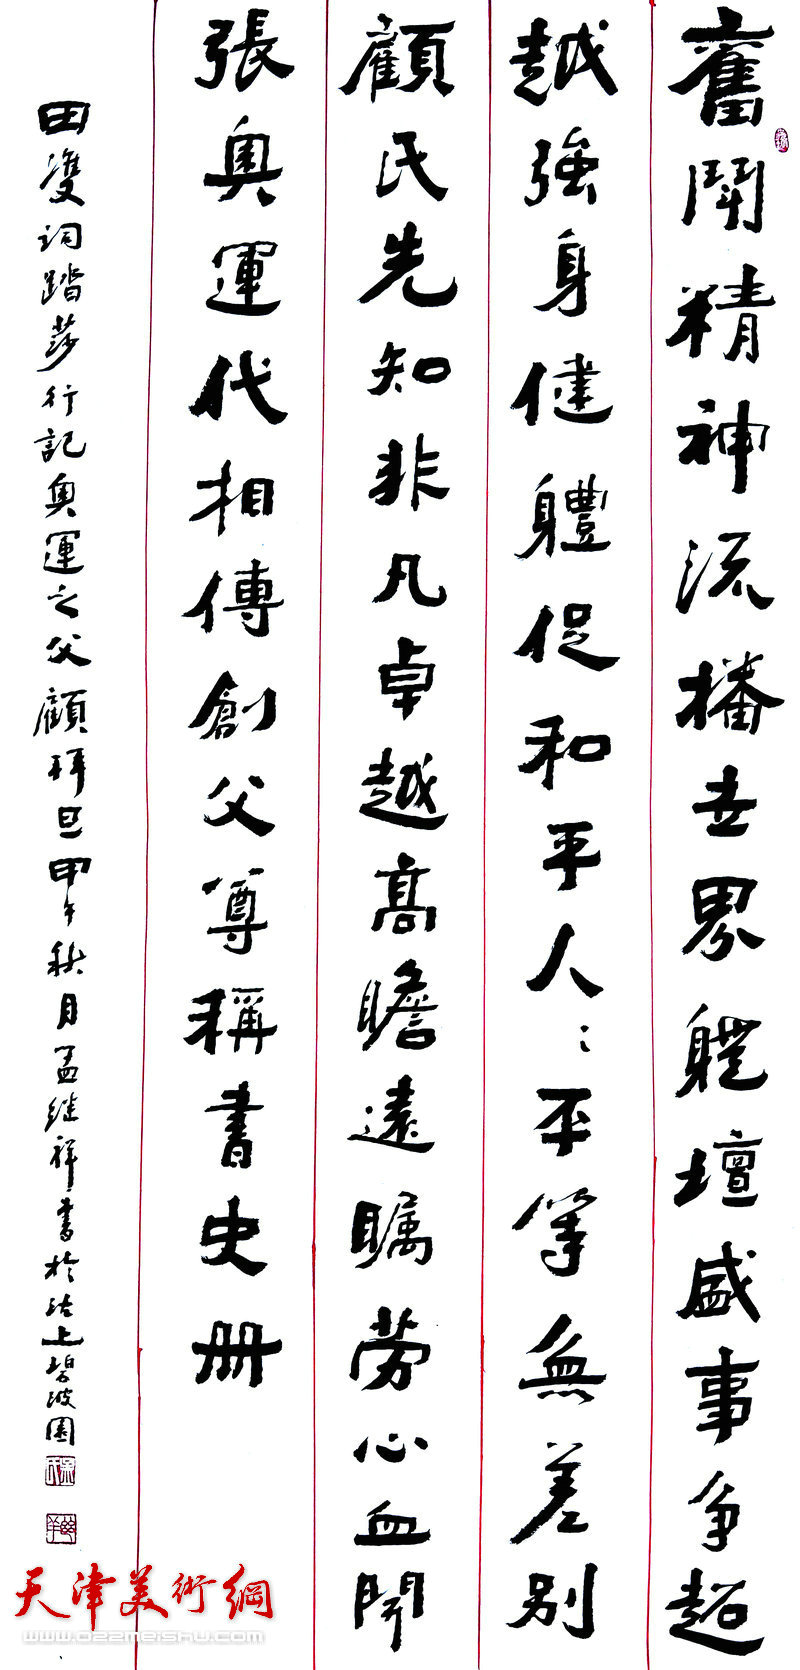 奮鬥精神流播世界軆壇盛事爭超
越強身健軆促和平人〻平等無差別
顧氏先知非凡卓越高瞻遠瞩勞心血開
張奧運代相傳創父尊稱書史冊
田雙詞踏莎行記奧運之父顧拜旦甲午秋月孟继祥書於沽上碧波園
天津美術網
www.022meishu.com